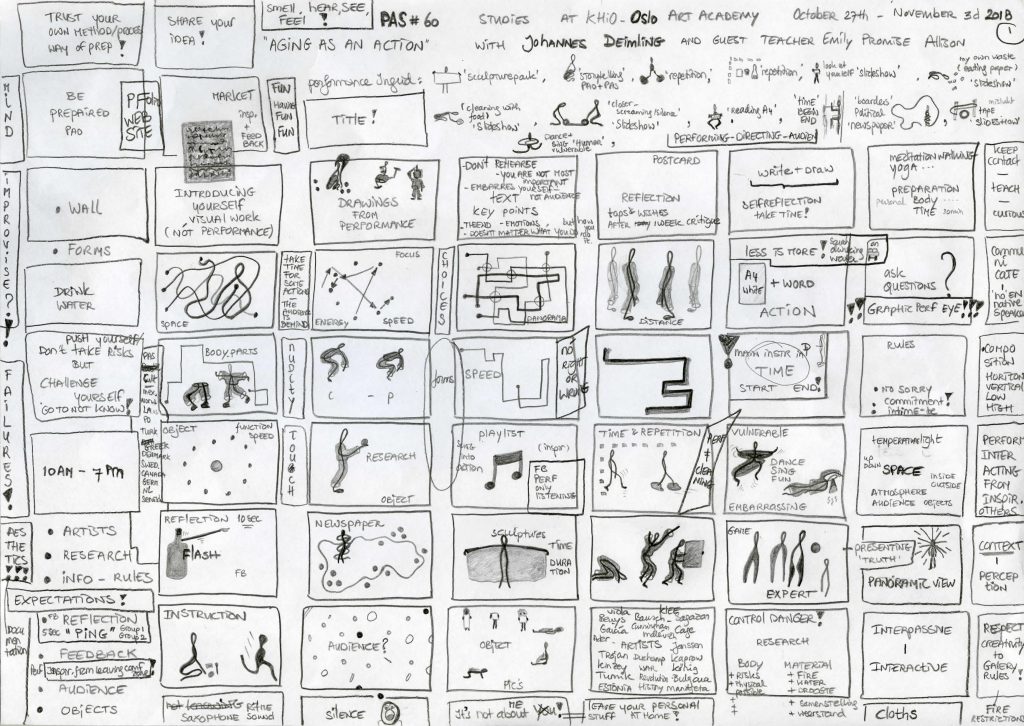 TRUST YOUR
OWN METHOD/PROCES
WAY OF PREP!
SHARE YOUR
IDEA!
SMELL, HEAR, SEE,
FEEL!
PAS # 60
STUDIES AT KHiO - OSLO ART ACADEMY
October 27th - November 3d 2018
1
"AGING AS AN ACTION"
WITH JOHANNES DEIMLING AND GUEST TEACHER Emily PROMISE Allison
MIND
BE
PREPAIRED
PAO
WEB
SITE
MARKET
insp.
+
FEED
BACK
FUN
FUN
FUN
performance Ingrid:
'sculpturepark',
'storytelling'
PAO+PAS
'repetition',
'repotition',
look at
yourself
'slideshow'
my own waste
(eating paper)
'slideshow'
TITLE!
(cleaning with
food)
'Slideshow'
Dance+
SING 'Human'
vulnerable
'closer-
screaming/silence'
'Slideshow'
'Reading A4'
'time'
BEEN
END
'boarders'
Political
'newspaper'
tape
'SLIDESHOW'
PERFORMING-DIRECTING-AUDIEN
IMPROVISE?!
• WALL
INTRODUCING
YOURSELF
VISUAL WORK
(NOT PERFORMANCE)
DRAWINGS
FROM
PERFORMANCE
-DON'T REHEARSE
-YOU ARE NOT MOST
IMPORTANT
-EMBARRES YOURSELF-
TEXT not AUDIENCE
KEY POINTS
-EMOTIONS, but how
you
do
it.
-DOESN'T MATTER WHAT YOU DO
POSTCARD
REFLECTION
tops & WISHES
AFTER WEEK critique
write + draw
SELFREFLECTION
TAKE TIME!
MEDITATION WALKING
YOGA...
PREPARATION
personal BODY...
TIME
KEEP
contact
-
TEACH
-
CURIOUS
• FORMS
DRINK
WATER
SPACE
TAKE
TIME
FOR
SOME
ACTIONS
-
THE
IS
BEHIND
FOCUS
ENERGY
SPEED
CHOICES
PANORAMA
DISTANCE
LESS IS MORE!
A4
white
+ WORD
ACTION
ask
QUESTIONS
?
GRAPHIC PERF EYE!
COMMU
NI
CATE
!
'no' EN
native
SPEAKER
FAILURES!
PUSH YOURSELF/
DON'T TAKE RISKS
BUT
CHALLENGE
YOURSELF
'GO TO NOT KNOW'!
PAS
BODYPARTS
NUDITY
C - P
forms
SPEED
NO
RIGHT
OR
WRONG
MAIN INSTR IN
TIME
START END!
RULES
• NO SORRY
• commitment!
COMPO
SITION
HORIZON
VERTICAL
LOW
HIGH
10AM - 7PM
TURK
GREEK
DENMARK
SWED.
CANADA
GERM
NL
OBJECT
FUNCTION
SPEED
TOUCH
RESEARCH
OBJECT
SING
INTO
ACTION
PLAYLIST
(impro)
FB
PERF
ONLY
LISTENING
TIME & REPETITION
PERF
≠
CLEANING
VULNERABLE
DANCE
SING
FUN
EMBARRASSING
TEMPERATURE LIGHT
UP
DOWN
SPACE
INSIDE
OUTSIDE
ATMOSPHERE
AUDIENCE OBJECTS
PERFORM
INTER
ACTING
FROM
INSPIR.
OTHERS
AES
THE
TICS
• ARTISTS
• RESEARCH
• INFO - RULES
REFLECTION 10SEC
FLASH
FB
NEWSPAPER
SCULPTURES
TIME
DURA
TION
GAME
EXPERT
PRESENTING
'TRUTH'
PANORAMIC VIEW
CONTEXT
-
PERCEP
TION
EXPECTATIONS!
DOCU
MEN
TATION
• FB REFLECTION
5 SEC "PING" Group 1
Group 2
• FEEDBACK
from leaving
• AUDIENCE
• OBJECTS
INSTRUCTION
AUDIENCE?
OBJECT
PIC's
Viola
Beuys
Cunningham
KLEE
Cage
ARTISTS
Janssen
Trojan Duchamp Kaprow
Bulgaria
ESTONIA History manifesta
CONTROL DANGER!
RESEARCH
BODY
+ RISKS
+ Physical
MATERIAL
+ FIRE
+ WATER
+ DROOGTE
+ samenstelling
+ weerstand
INTERPASSIVE
-
INTERACTIVE
RESPECT
CREATIVITY
to
GALERY,
RULES!
SAXOPHONE SOUND
SILENCE
ME
It's not about YOU!
LEAVE YOUR PERSONAL
STUFF AT HOME!
Cloths
FIRE
RESTRICTION